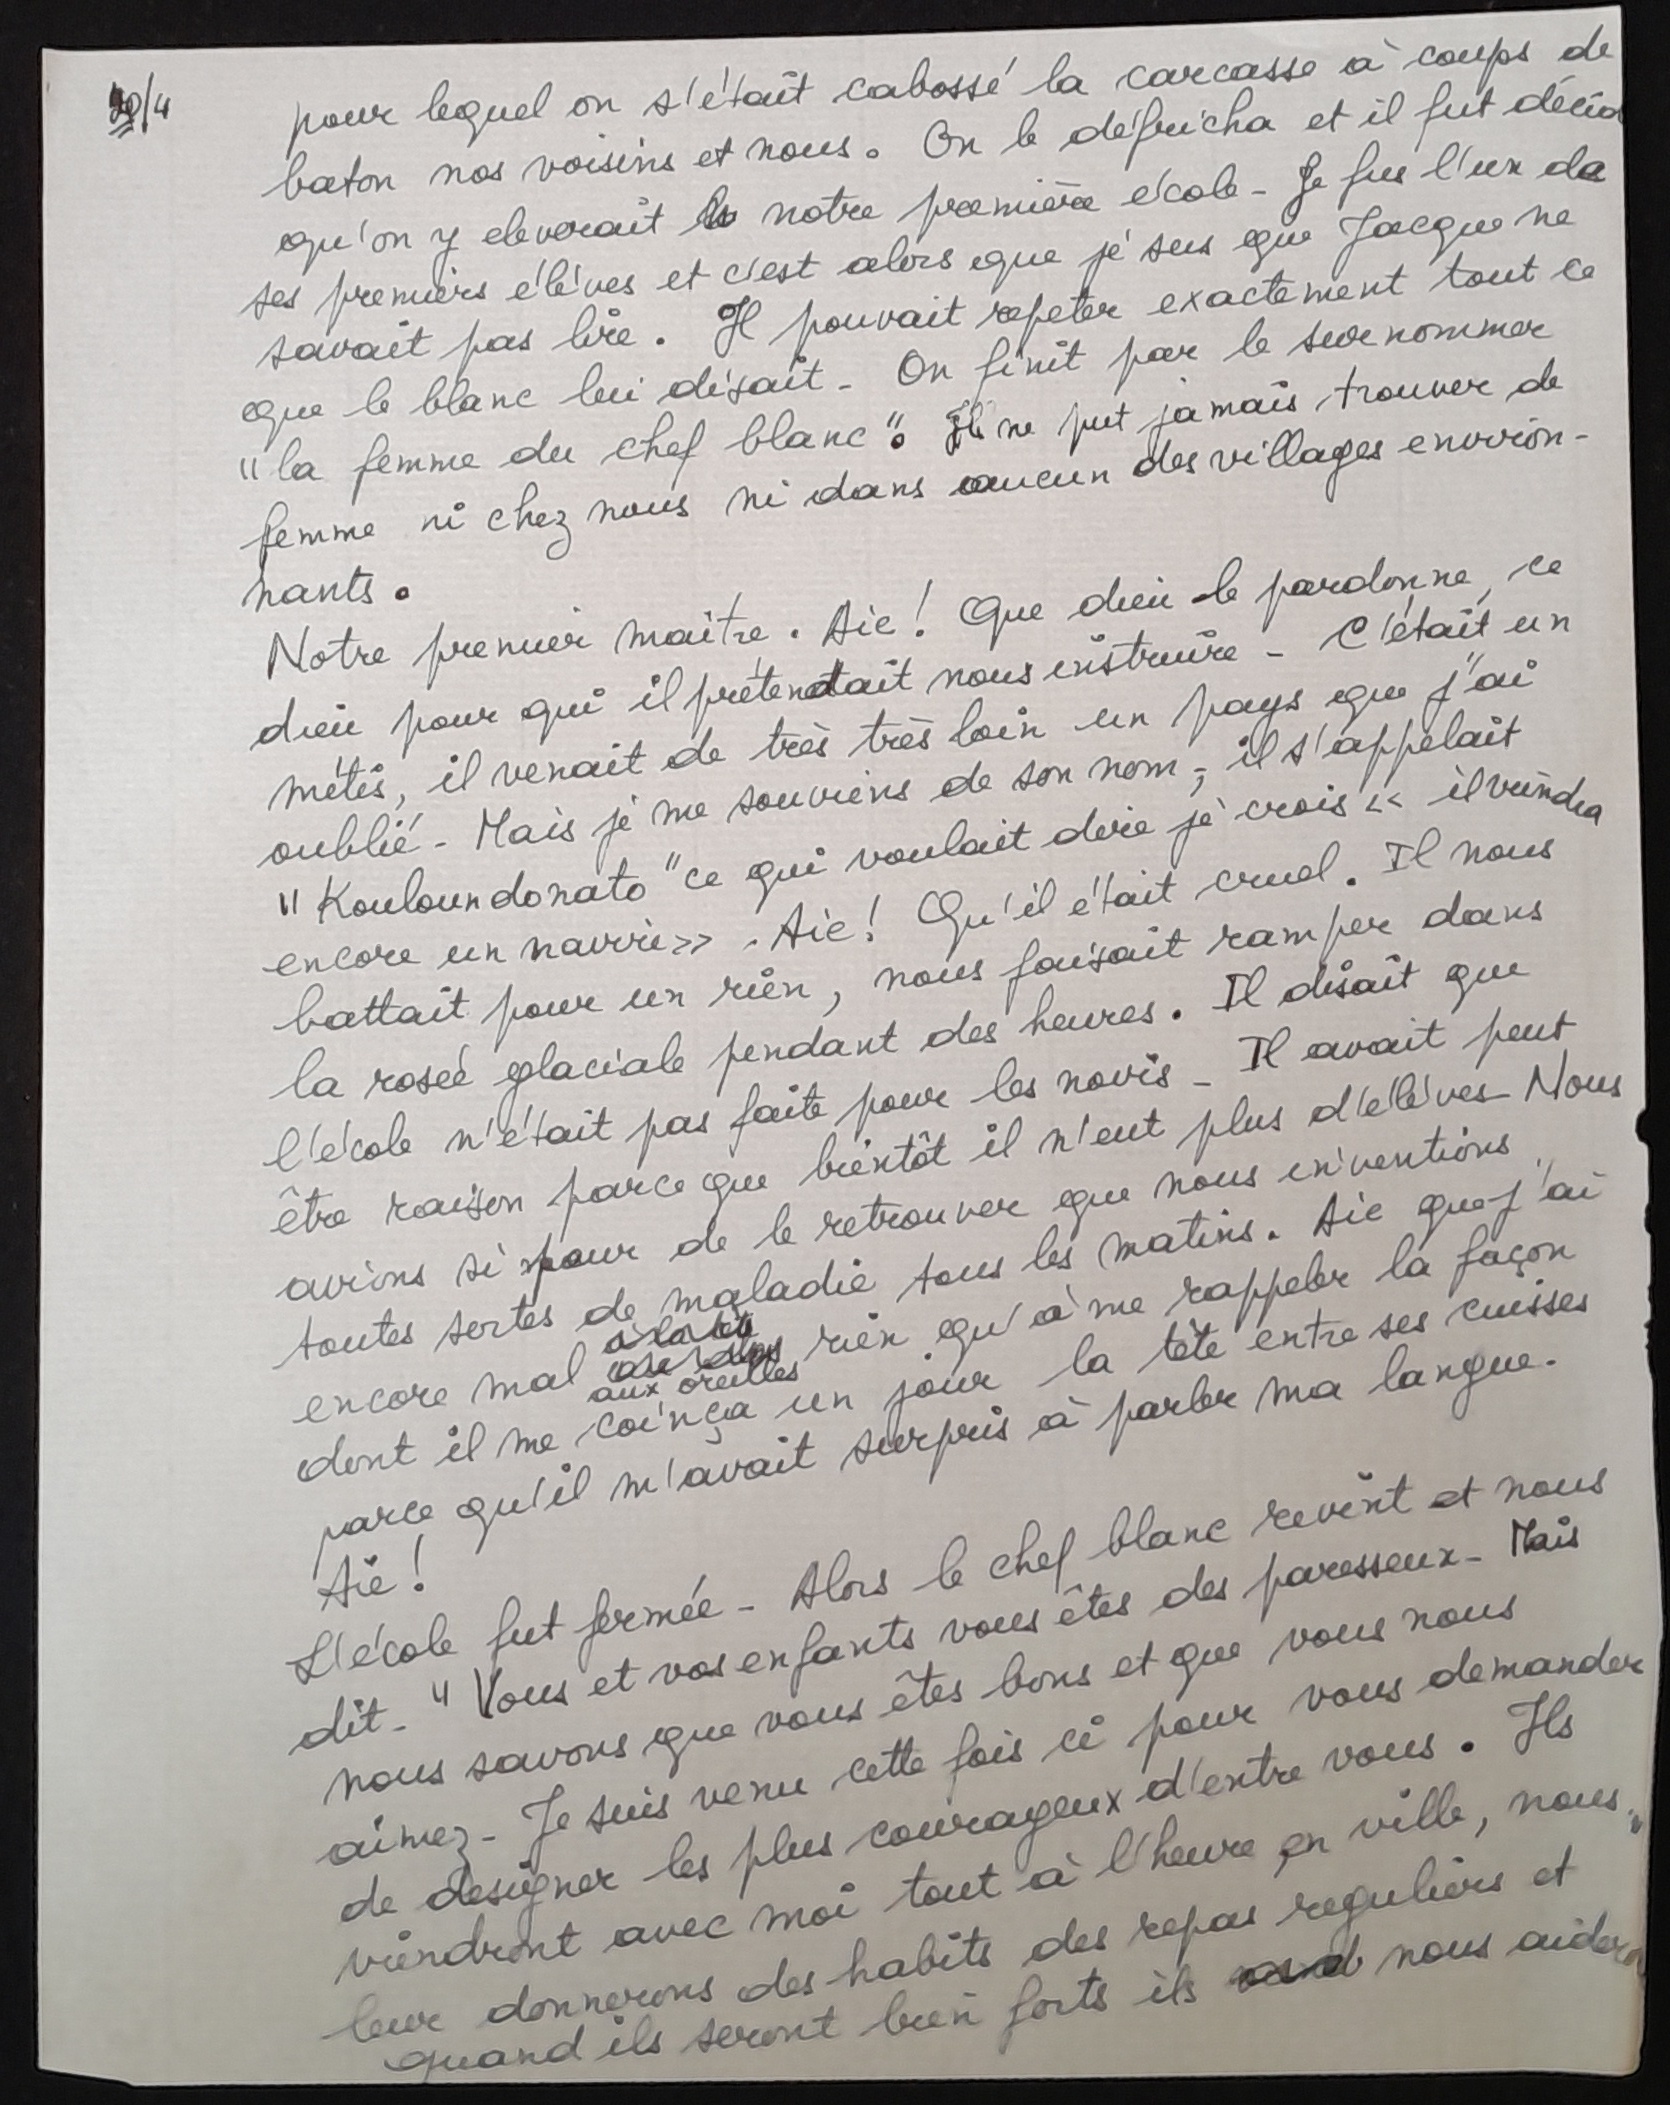 20/4
pour lequel on s'était cabossé la carcasse à coups de
baton nos voisins et nous. On le défricha et il fut décid
qu'on y eleverait notre première école - Je fus l'un de
ses premiers élèves et c'est alors que je sus que Jacque ne
savait pas lire. Il pouvait repeter exactement tout ce
que le blanc lui disait - On finit par le surnommer
"la femme du chef blanc". Il ne put jamais trouver de
femme ni chez nous ni dans aucun des villages environ-
nants.
Notre premier maître. Aie! Que dieu le pardonne, ce
dieu pour qui il prétendait nous instruire - C'était un
métis, il venait de très très loin un pays que j'ai
oublié - Mais je me souviens de son nom, il s'appelait
"Kouloundonato" ce qui voulait dire je crois << il viendra
encore un navire >>. Aie! Qu'il était cruel. Il nous
battait pour un rien, nous faisait ramper dans
la roseé glaciale pendant des heures. Il disait que
l'école n'était pas faite pour les novis - Il avait peut
être raison parce que bientôt il n'eut plus d'élèves - Nous
avions si peur de le retrouver que nous inventions
toutes sortes de maladie tous les matins. Aie que j'ai
encore mal aux oreilles rien qu'à me rappeler la façon
dont il me coinça un jour la tête entre ses cuisses
parce qu'il m'avait surpris à parler ma langue.
Aie!
L'école fut fermée - Alors le chef blanc revint et nous
dit - "Vous et vos enfants vous êtes des paresseux - Mais
nous savons que vous êtes bons et que vous nous
aimez - Je suis venu cette fois ci pour vous demander
de designer les plus courageux d'entre vous. Ils
viendront avec moi tout à l'heure en ville, nous
leur donnerons des habits des repas reguliers et
quand ils seront bien forts ils nous aideron